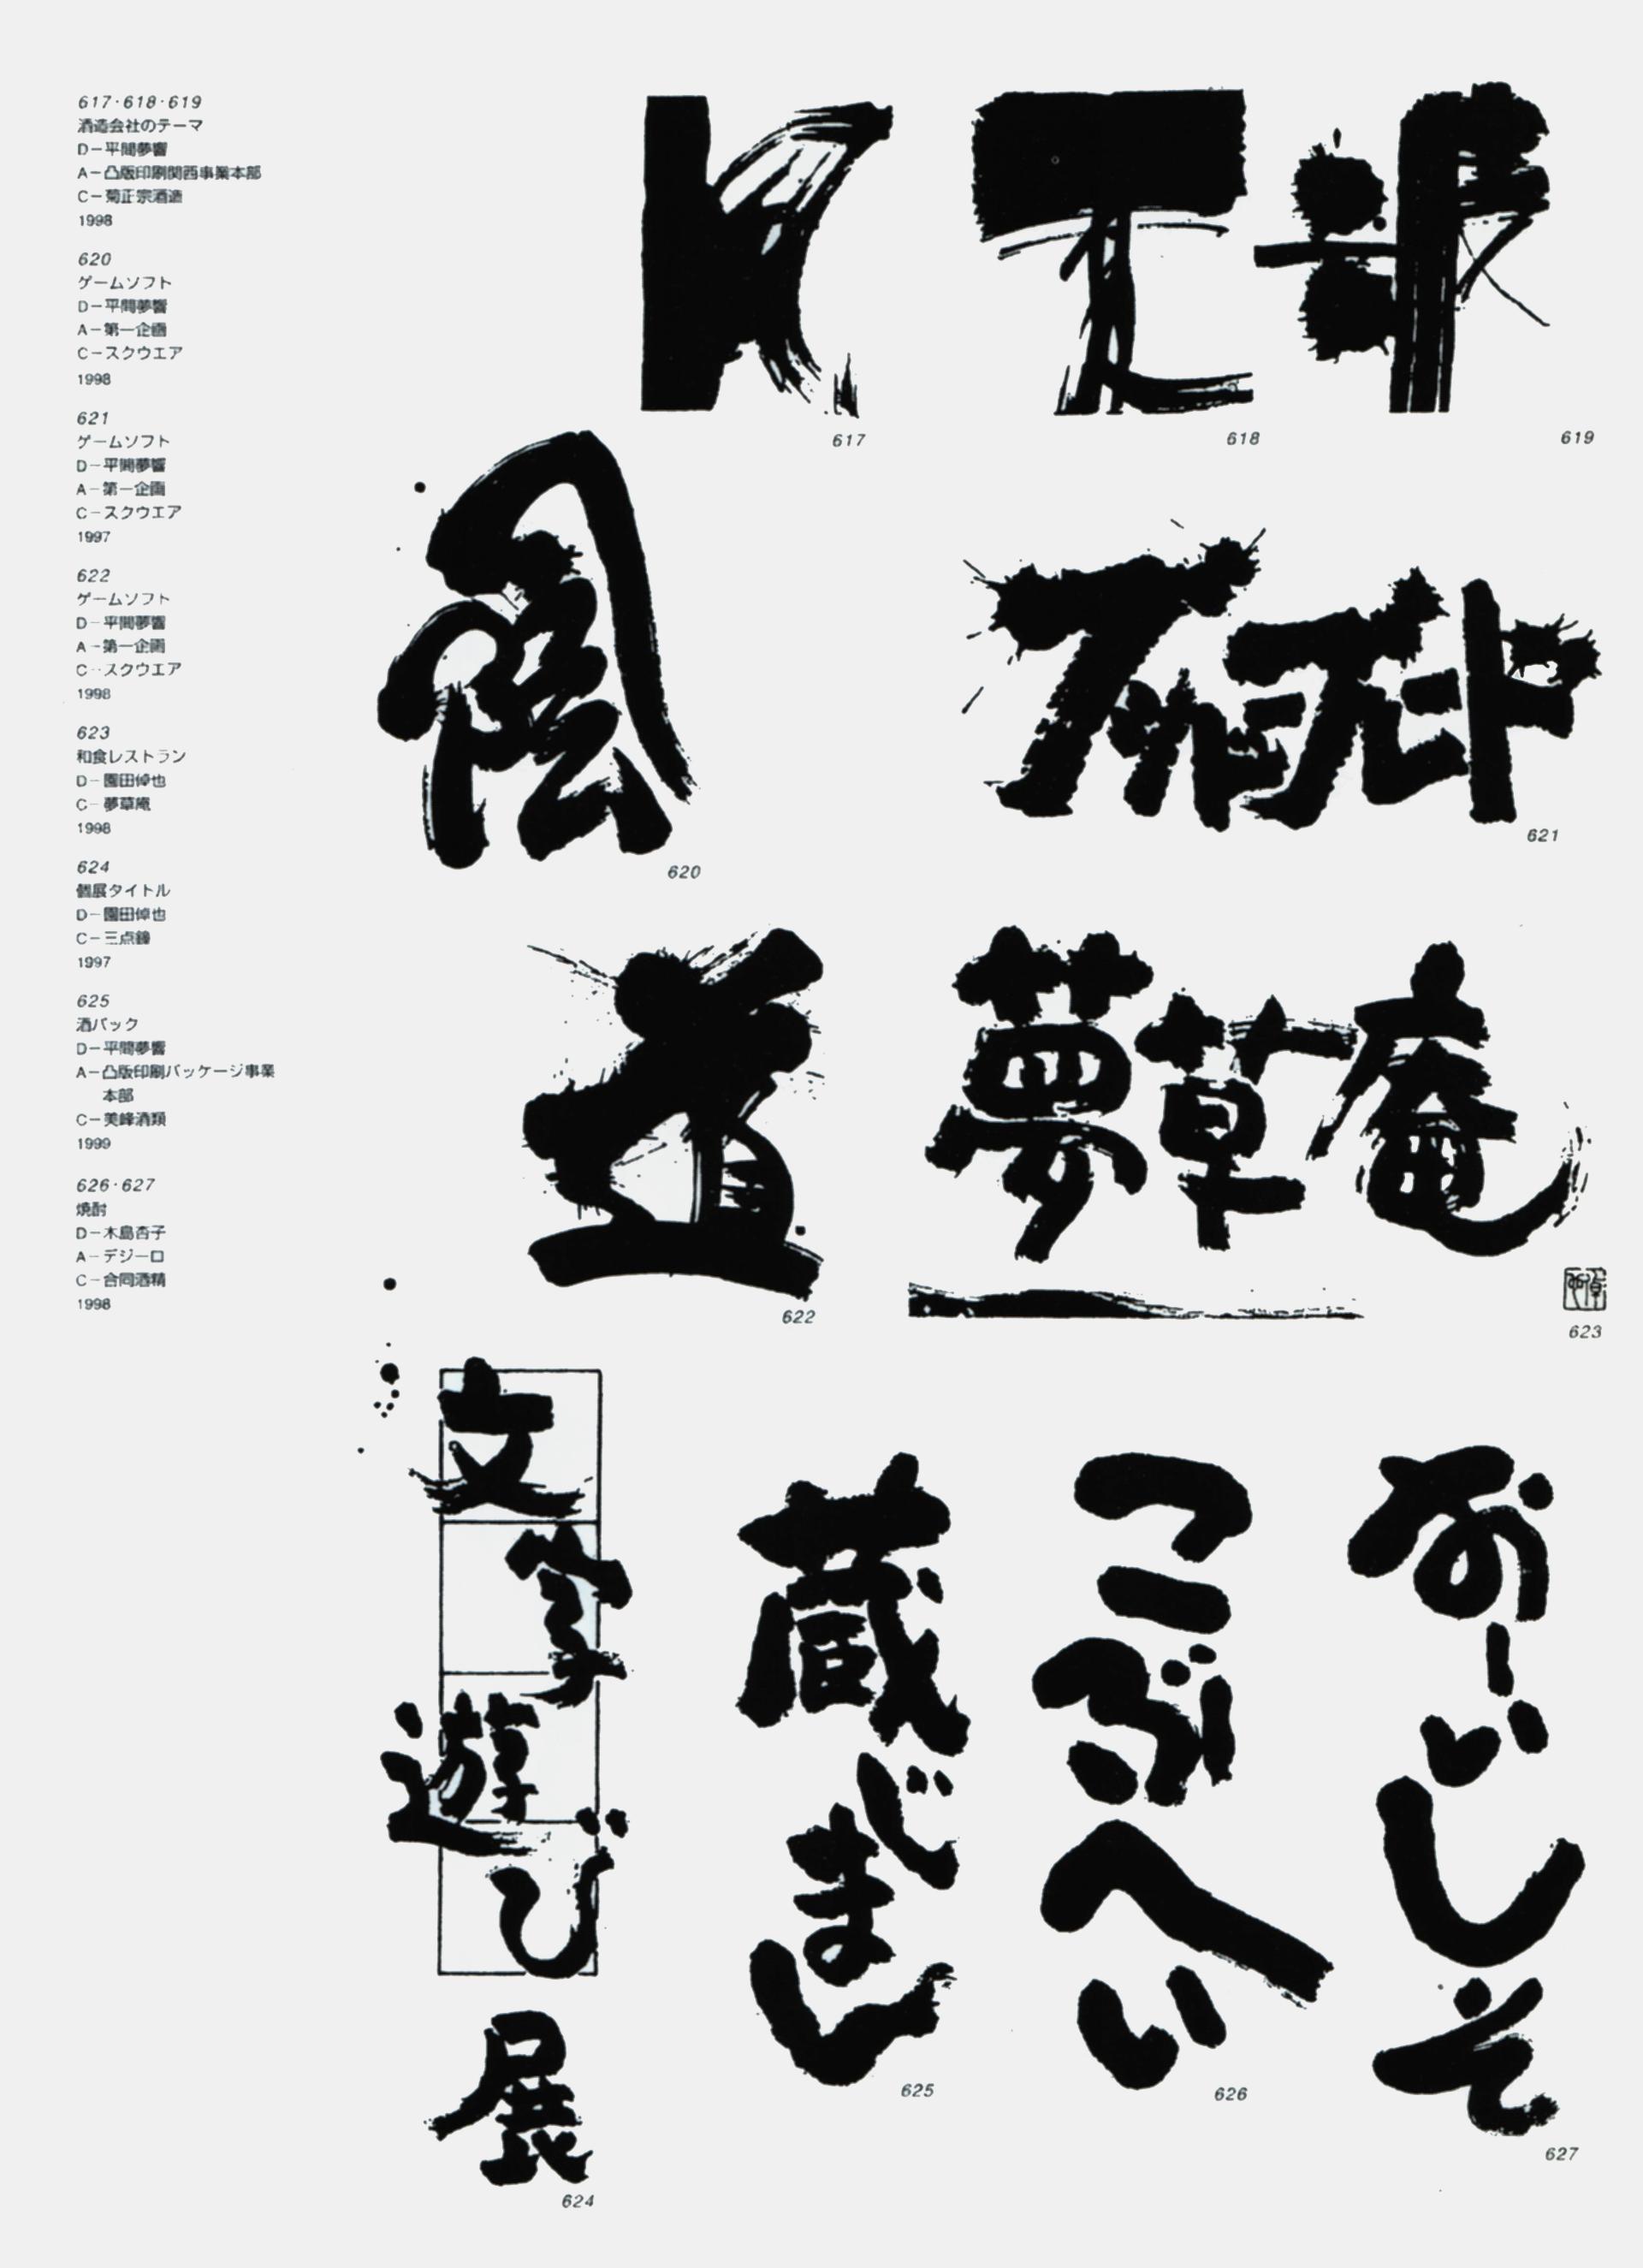 617·618·619
酒造会社のテーマ
D－平間夢響
A－凸版印刷関西事業本部
C－菊正宗酒造
1998
620
ゲームソフト
D－平間夢響
A－第一企画
C－スクウエア
1998
621
ゲームソフト
D－平間夢響
A－第一企画
C－スクウエア
1997
622
ゲームソフト
D－平間夢響
A－第一企画
C－スクウエア
1998
623
和食レストラン
D－園田倬也
C－夢草庵
1998
624
個展タイトル
D－園田倬也
C－三点鐘
1997
625
酒パック
D－平間夢響
A－凸版印刷パッケージ事業
本部
C－美峰酒類
1999
626·627
焼酎
D－木島杏子
A－デジーロ
C－合同酒精
1998
617
618
619
620
621
622
夢草庵
623
文字遊び展
624
蔵じまし
625
こぶへい
626
おーいしそ
627